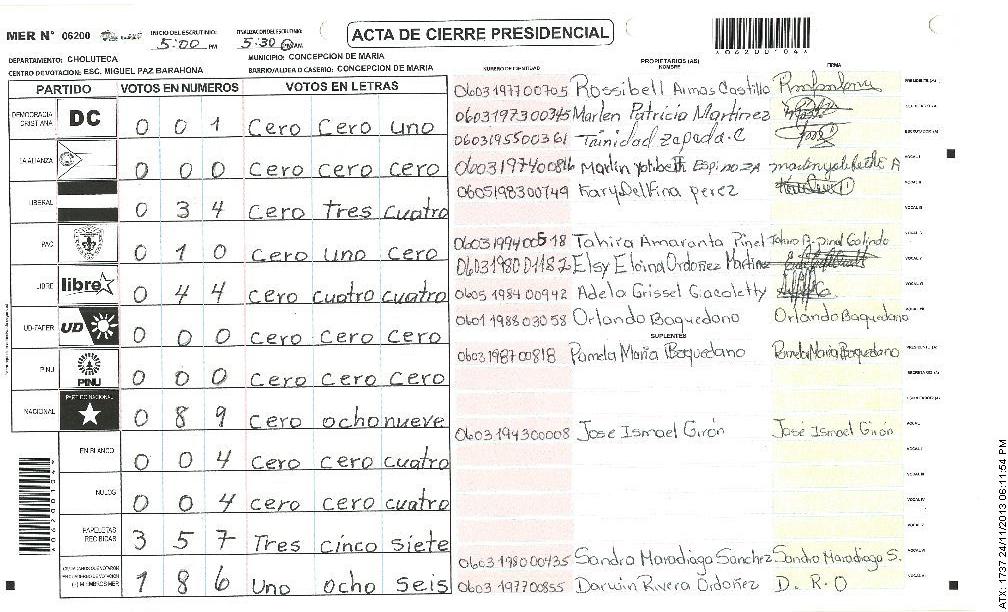 MER N° 06200
INICIO DEL ESCRUTINIO: 5:00 PM
FINALIZACION ESCRUTINIO: 5:30
ACTA DE CIERRE PRESIDENCIAL
*06200104*
DEPARTAMENTO: CHOLUTECA
MUNICIPIO: CONCEPCION DE MARIA
CENTRO DE VOTACION: ESC. MIGUEL PAZ BARAHONA
BARRIO/ALDEA O CASERIO: CONCEPCION DE MARIA
PARTIDO VOTOS EN NUMEROS VOTOS EN LETRAS
DEMOCRACIA CRISTIANA DC 0 0 1 Cero Cero uno
LA ALIANZA 0 0 0 Cero cero cero
LIBERAL 0 3 4 Cero Tres cuatro
PAC 0 1 0 Cero uno cero
LIBRE libre 0 4 4 Cero cuatro cuatro
UD-FAPER UD 0 0 0 Cero cero cero
PINU PINU 0 0 0 Cero cero cero
NACIONAL PARTIDO NACIONAL 0 8 9 Cero ocho nueve
EN BLANCO 0 0 4 Cero cero cuatro
NULOS 0 0 4 Cero cero cuatro
PAPELETAS RECIBIDAS 3 5 7 Tres cinco siete
1 8 6 uno ocho seis
NUMERO DE IDENTIDAD PROPIETARIOS (AS) NOMBRE FIRMA
0603197700705 Rossibell Armas Castillo PRESIDENTE (A)
0603197300345 Marlen Patricia Martinez
0603195500361 Trinidad zapada.C
0603197400816 Marlin Yolibeth Espinoza
0605198300749 Kary Delfina perez
0603199400518 Tahira Amaranta Pinel
0603198001182 Elsy Elcina Ordoñez Martinez
0605198400942 Adela Grissel Giacoletty
0601198803058 Orlando Baquedano Orlando Baquedano
SUPLENTES
0603198700818 Pamela Maria Baquedano Pamela Maria Baquedano
0603194300008 José Ismael Girón José Ismael Girón
0603198000435 Sandra Maradiaga Sánchez Sandra Maradiaga S.
0603197700855 Darwin Rivera Ordoñez D. R. O
*06200104*
ATX: 1737 24/11/2013 06:11:54 PM